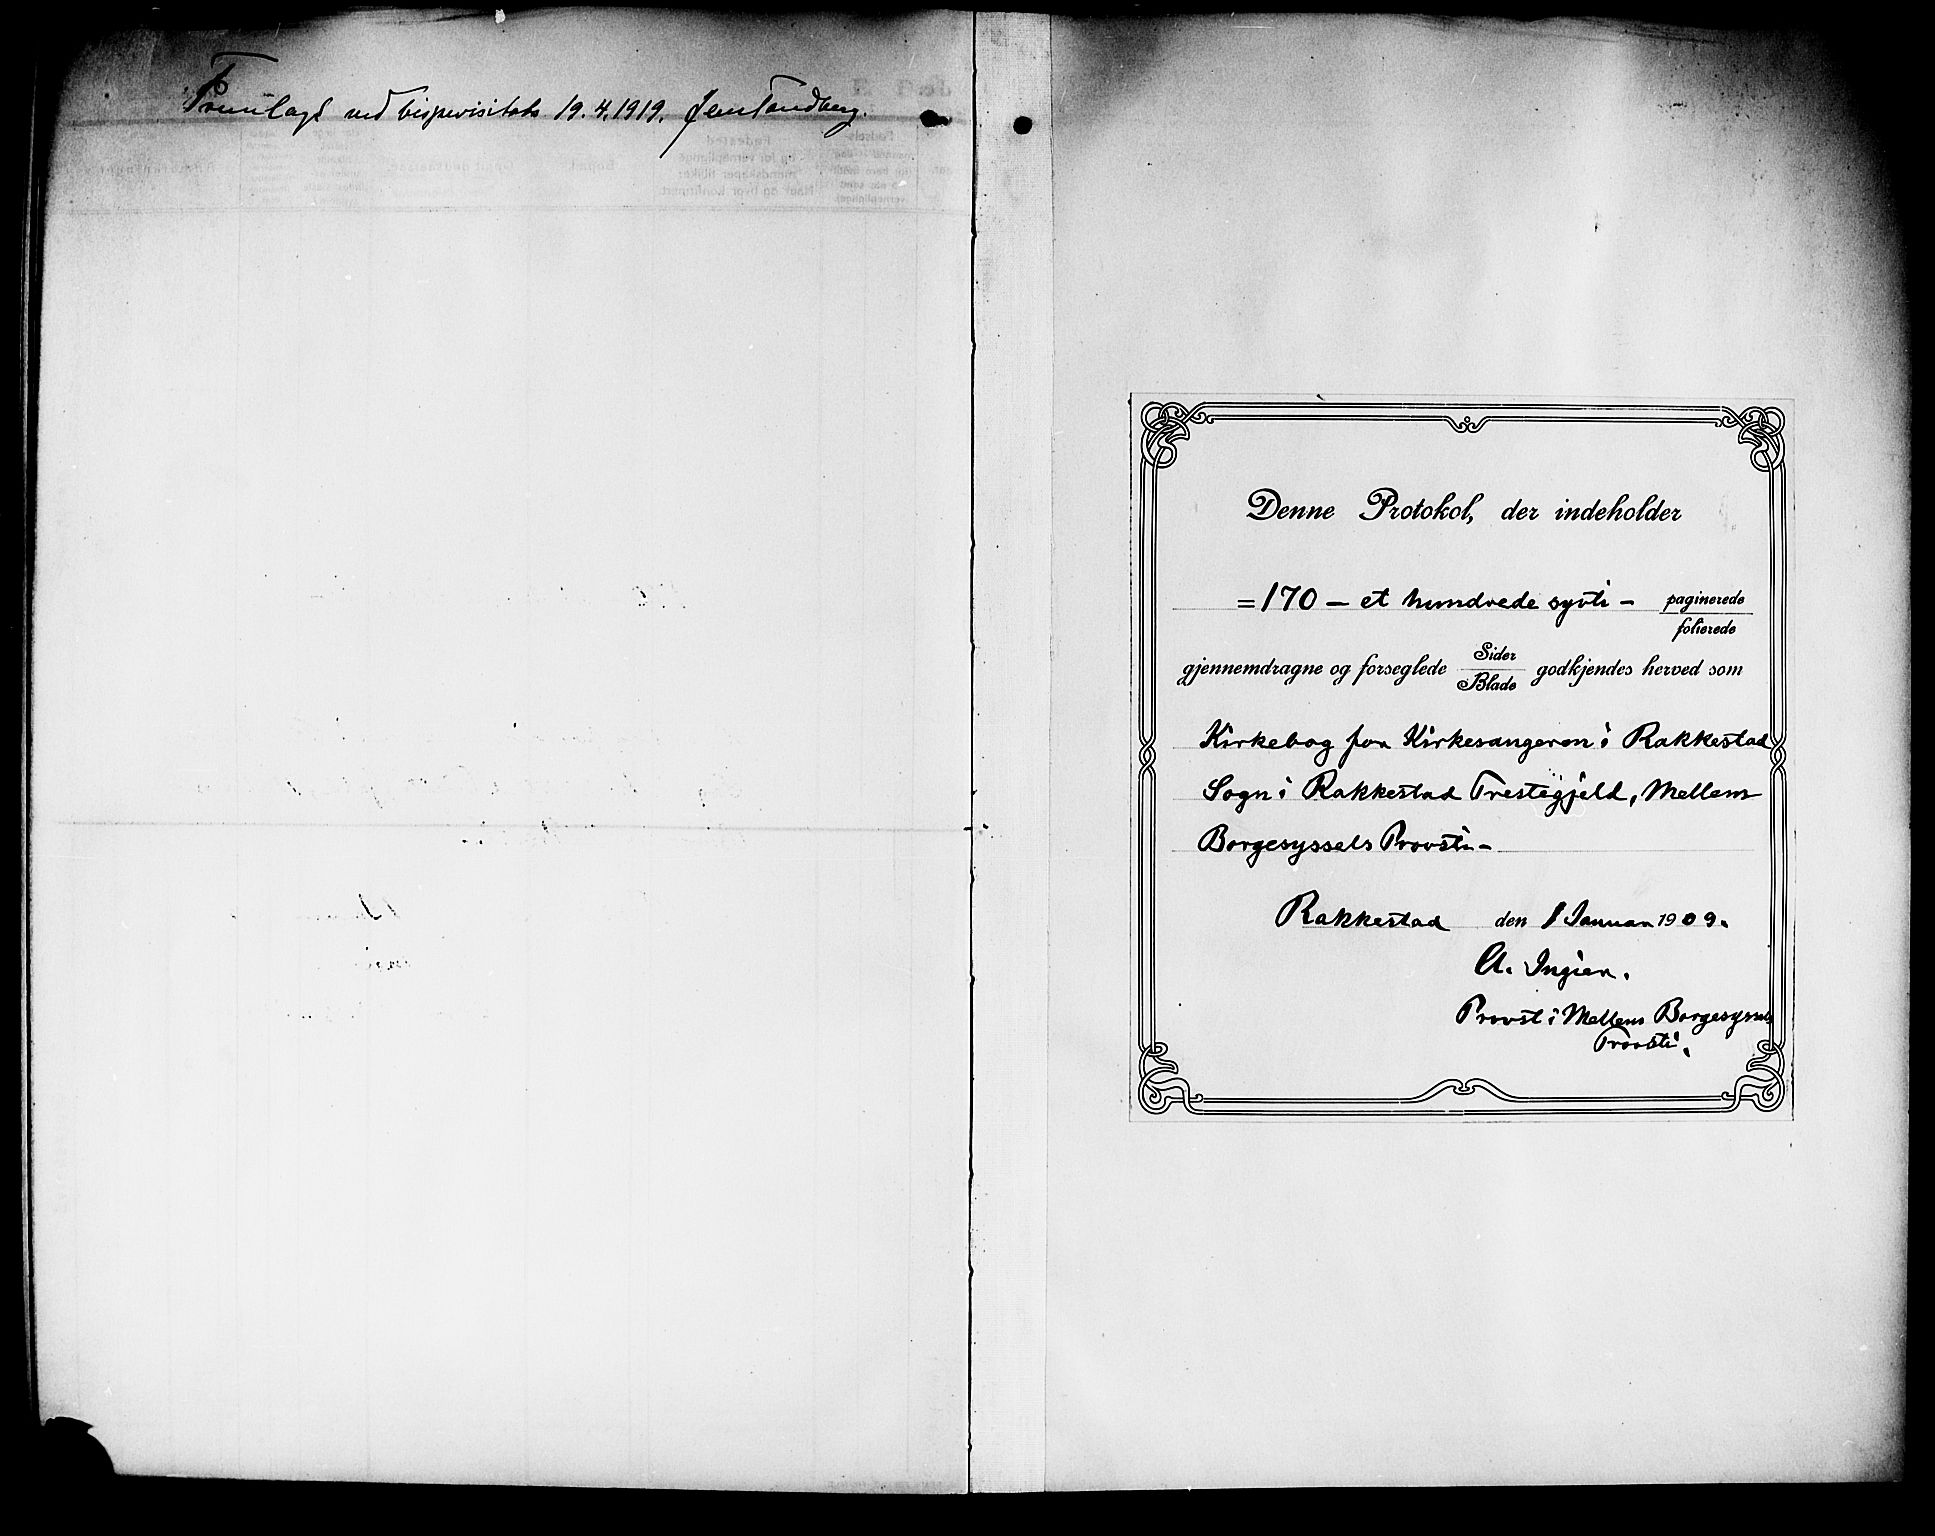 Fremlagt ved bispevisitats 19.4.1919. Jens Tandberg.
Denne Protokol, der indeholder
= 170 – et hundrede sytti – paginerede
folierede
gjennemdragne og forseglede Sider godkjendes herved som
Blade
Kirkebog for Kirkesangeren i Rakkestad
Sogn i Rakkestad Prestegjeld, Mellem
Borgesyssels Provsti –
Rakkestad den 1 Januar 1909.
A. Ingier.
Provst i Mellem Borgesyssels
Provsti.